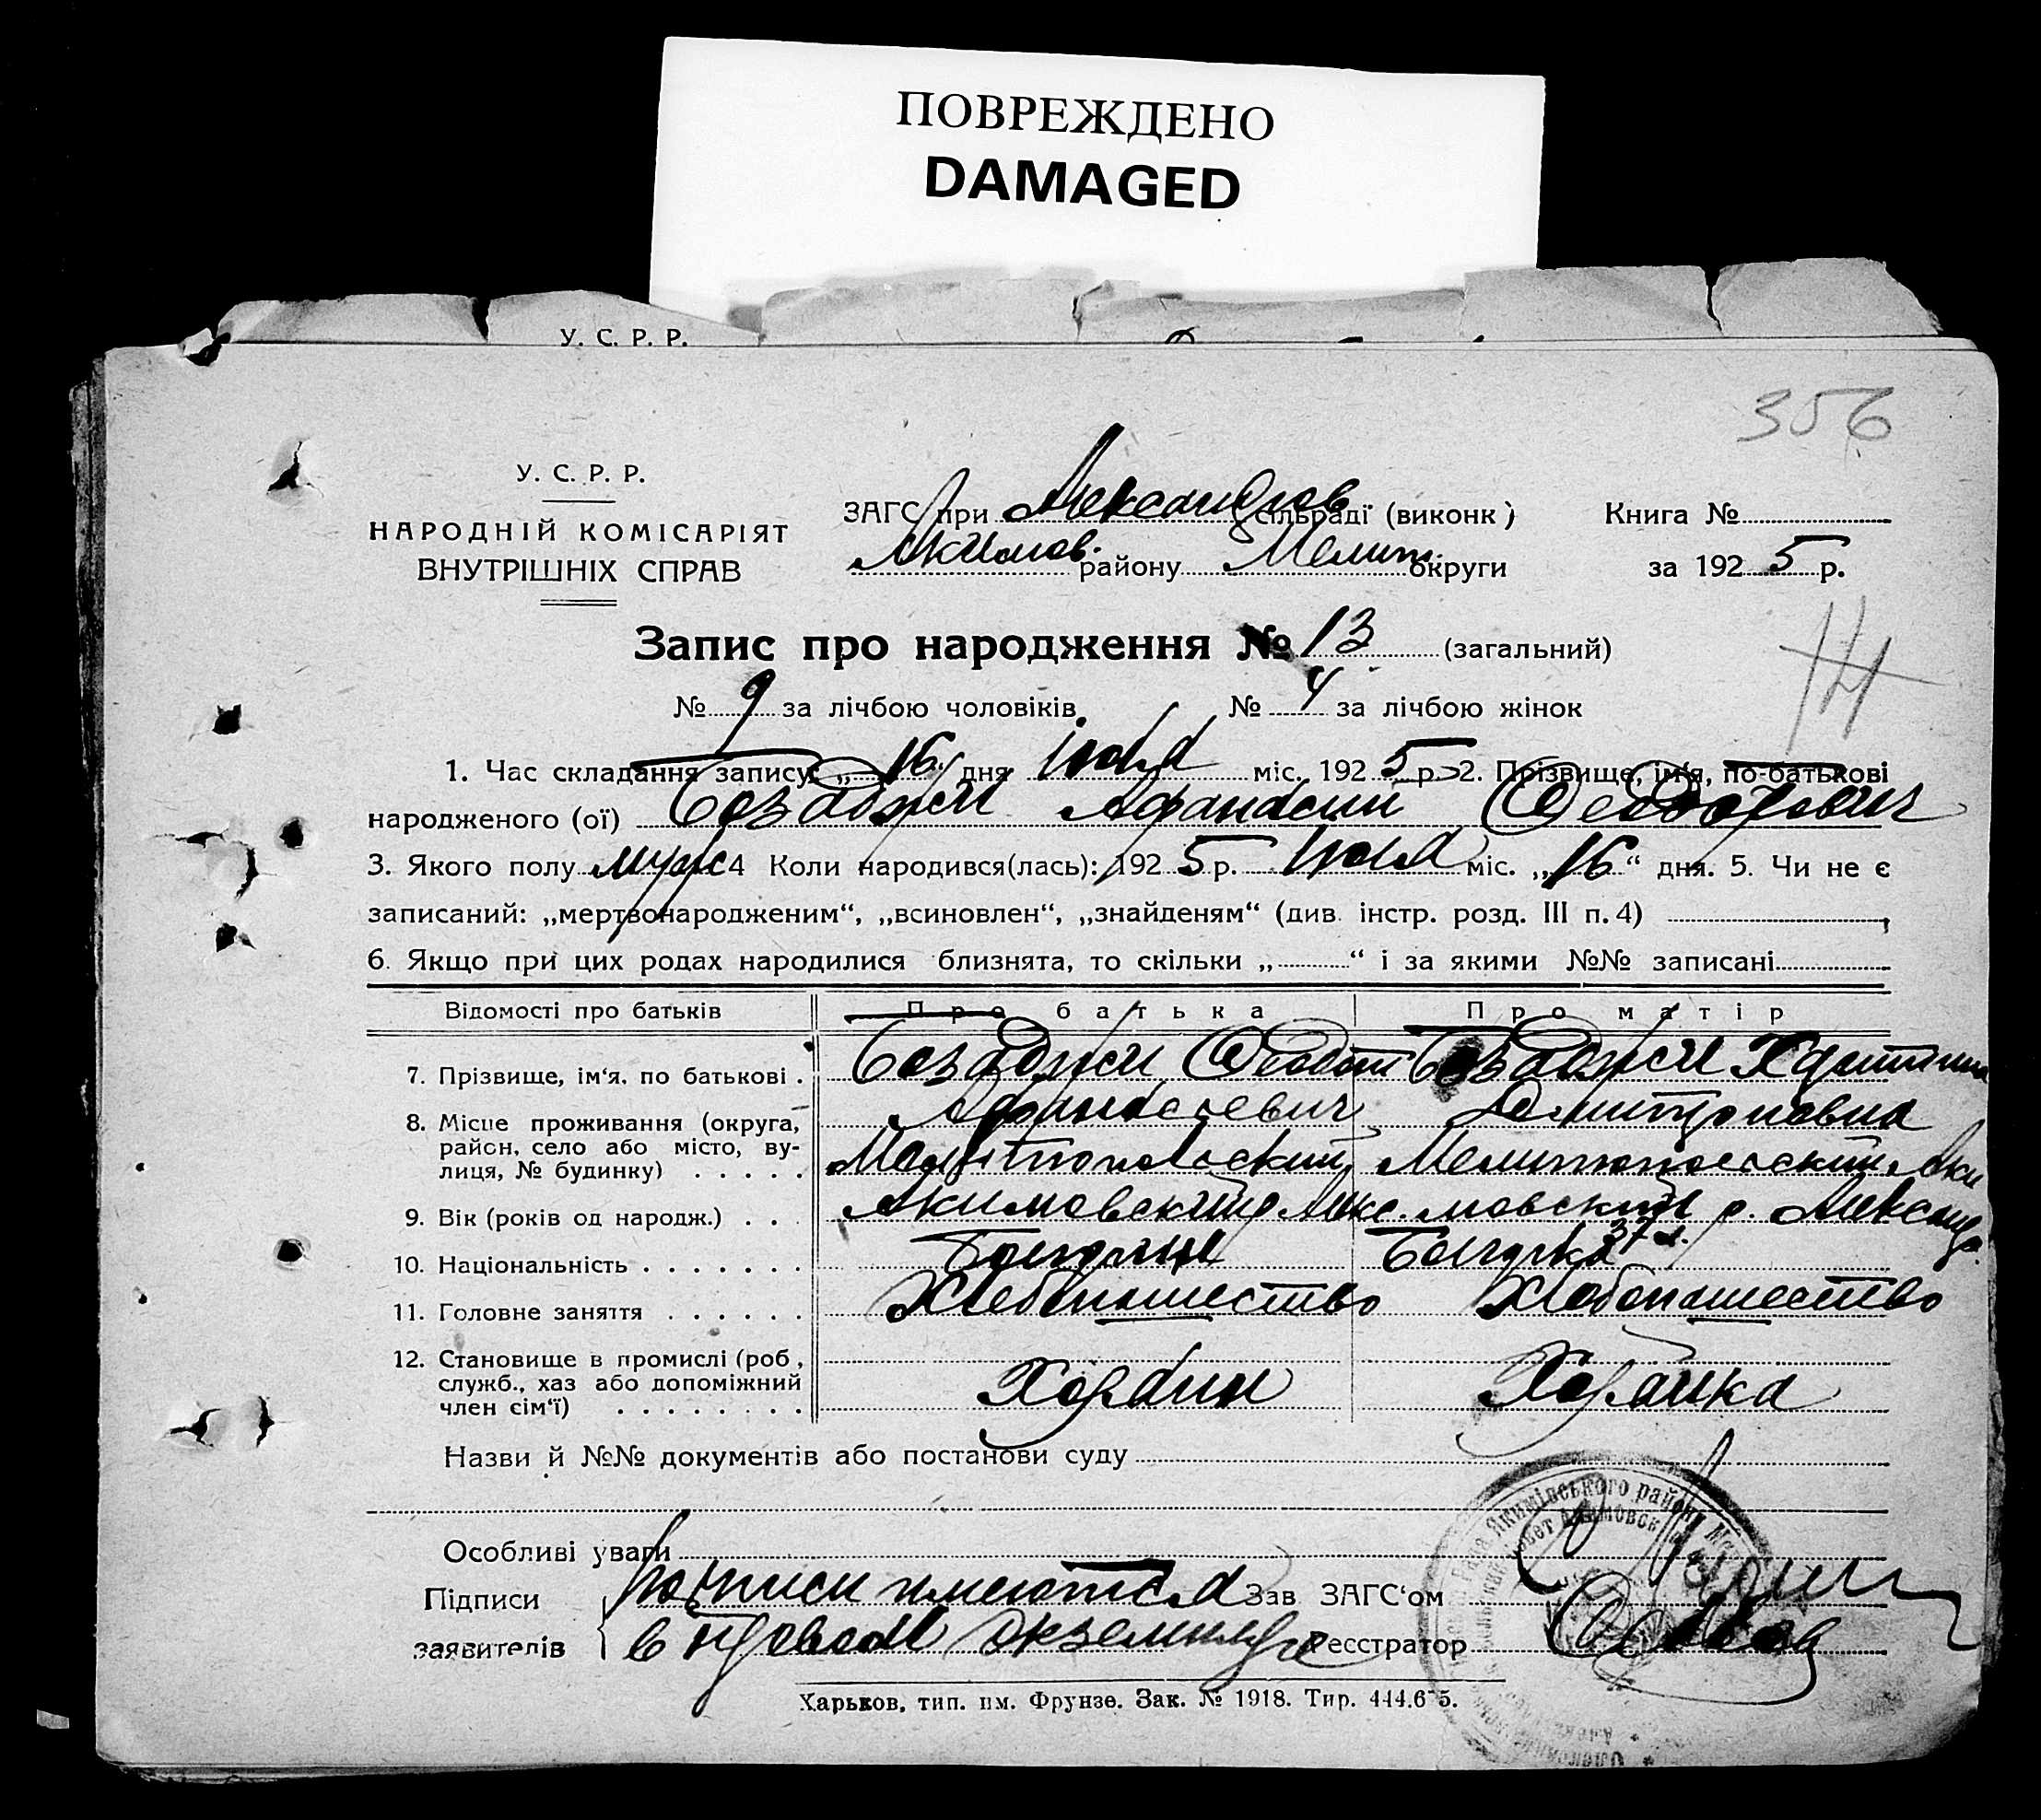 ПОВРЕЖДЕНО
DAMAGED
У. С. Р. Р.
356
У. С. Р. Р.
НАРОДНІЙ КОМІСАРІЯТ
ВНУТРІШНІХ СПРАВ
ЗАГС при Александров сільраді (виконк)
Акимов. району Мелит. округи
Книга №
за 1925 р.
Запис про народження № 13 (загальний)
№ 9 за лічбою чоловіків № 4 за лічбою жінок
14
1. Час складання запису: „16" дня июля міс. 1925 р. 2. Прізвище, ім'я, по-батькові
народженого (ої) Бозаджи Афанасий Феодорович
3. Якого полу муж 4 Коли народився(лась): 1925 р. июля міс. „16" дня. 5. Чи не є
записаний: „мертвонародженим", „всиновлен", „знайденям" (див. інстр. розд. III п. 4)
6. Якщо при цих родах народилися близнята, то скільки „ " і за якими №№ записані
Відомості про батьків Про батька Про матір
7. Прізвище, ім'я, по батькові . Бозаджи Бозаджи
Афанасиевич Дмитровна
8. Місце проживання (округа,
район, село або місто, ву-
лиця, № будинку) . . . . . Мелитопольский Мелитопольский Аки
9. Вік (років од народж.) . . . Акимовский р Алекс. мовский р. Александр.
37 л.
10. Національність . . . . . . . Болгарин Болгарка
11. Головне заняття . . . . . . Хлебопашество Хлебопашество
12. Становище в промислі (роб,
служб., хаз або допоміжний
член сім'ї) . . . . . . . . Хозяин Хозяйка
Назви й №№ документів або постанови суду
Особливі уваги
Підписи заявителів { росписи имеются Зав ЗАГС'ом
в первом экземпляре Реєстратор
Харьков, тип. им. Фрунзе. Зак. № 1918. Тир. 444.6 5.
Рада Якимівського району